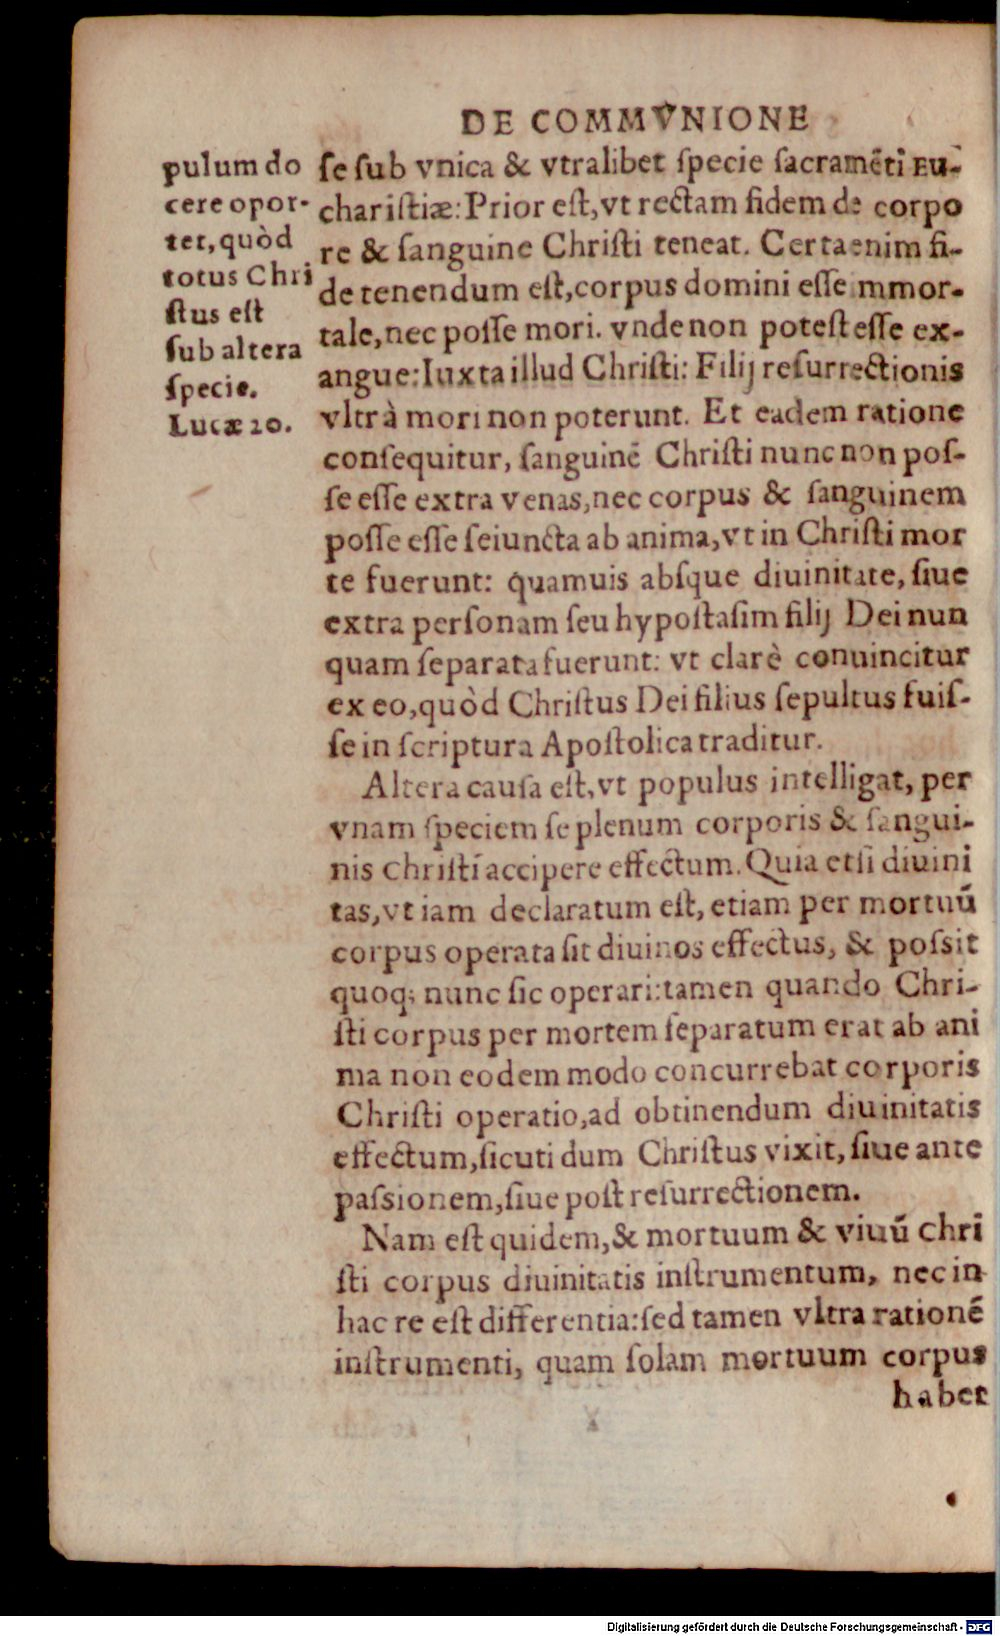 DE COMMVNIONE
pulum do
cere opor-
tet, quòd
totus Chri
ſtus eſt
ſub altera
ſpecie.
Lucæ 20.
ſe ſub vnica & vtralibet ſpecie ſacramēti EU-
chariſtiæ: Prior eſt, vt rectam fidem de corpo
re & ſanguine Chriſti teneat. Certa enim fi-
de tenendum eſt, corpus domini eſſe immor-
tale, nec poſſe mori. vnde non poteſt eſſe ex-
angue: Iuxta illud Chriſti: Filij reſurrectionis
vltrà mori non poterunt. Et eadem ratione
conſequitur, ſanguinē Chriſti nunc non poſ-
ſe eſſe extra venas, nec corpus & ſanguinem
poſſe eſſe ſeiuncta ab anima, vt in Chriſti mor
te fuerunt: quamuis abſque diuinitate, ſiue
extra perſonam ſeu hypoſtaſim filij Dei nun
quam ſeparata fuerunt: vt clarè conuincitur
ex eo, quòd Chriſtus Dei filius ſepultus fuiſ-
ſe in ſcriptura Apoſtolica traditur.
Altera cauſa eſt, vt populus intelligat, per
vnam ſpeciem ſe plenum corporis & ſangui-
nis chriſti accipere effectum. Quia etſi diuini
tas, vt iam declaratum eſt, etiam per mortuū
corpus operata ſit diuinos effectus, & poſsit
quoq; nunc ſic operari: tamen quando Chri-
ſti corpus per mortem ſeparatum erat ab ani
ma non eodem modo concurrebat corporis
Chriſti operatio, ad obtinendum diuinitatis
effectum, ſicuti dum Chriſtus vixit, ſiue ante
paſsionem, ſiue poſt reſurrectionem.
Nam eſt quidem, & mortuum & viuū chri
ſti corpus diuinitatis inſtrumentum, nec in
hac re eſt differentia: ſed tamen vltra rationē
inſtrumenti, quam ſolam mortuum corpus
habet
Digitalisierung gefördert durch die Deutsche Forschungsgemeinschaft - DFG